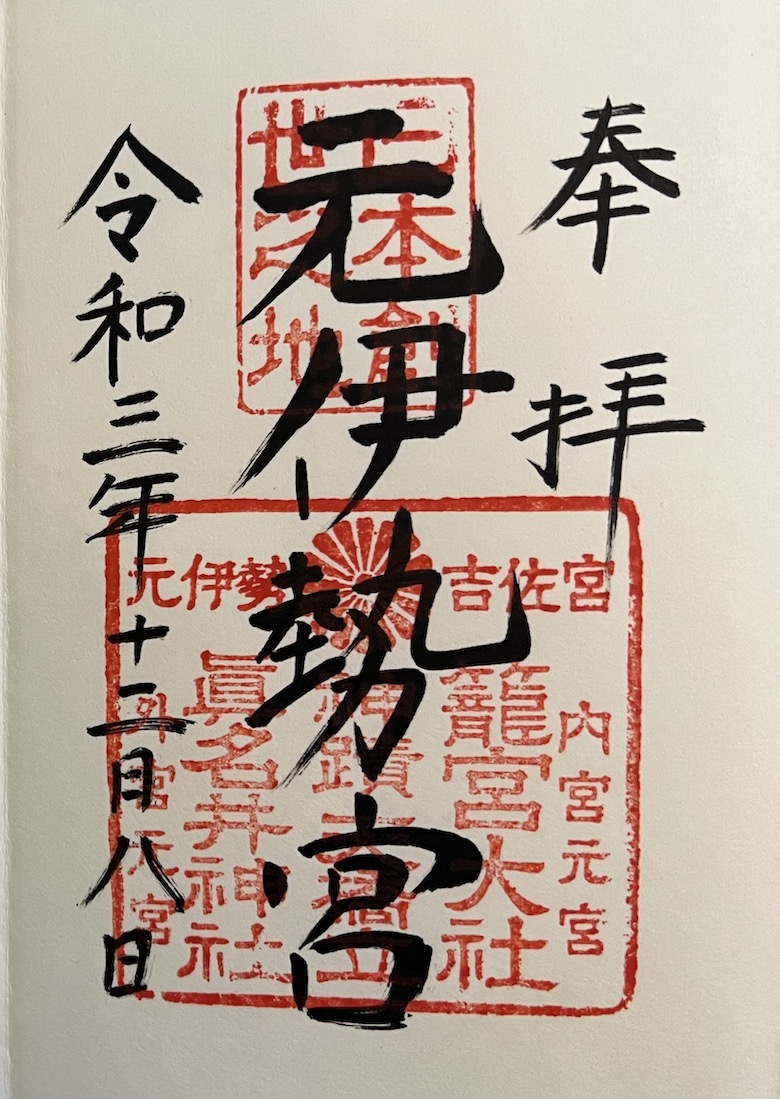 奉拝
元伊勢宮
令和三年十二月八日
日本創
世之地
元伊勢
吉佐宮
内宮元宮
籠宮大社
神蹟天橋立
眞名井神社
外宮元宮